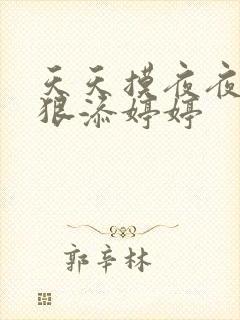 天天摸夜夜
狠添婷婷
郭辛林